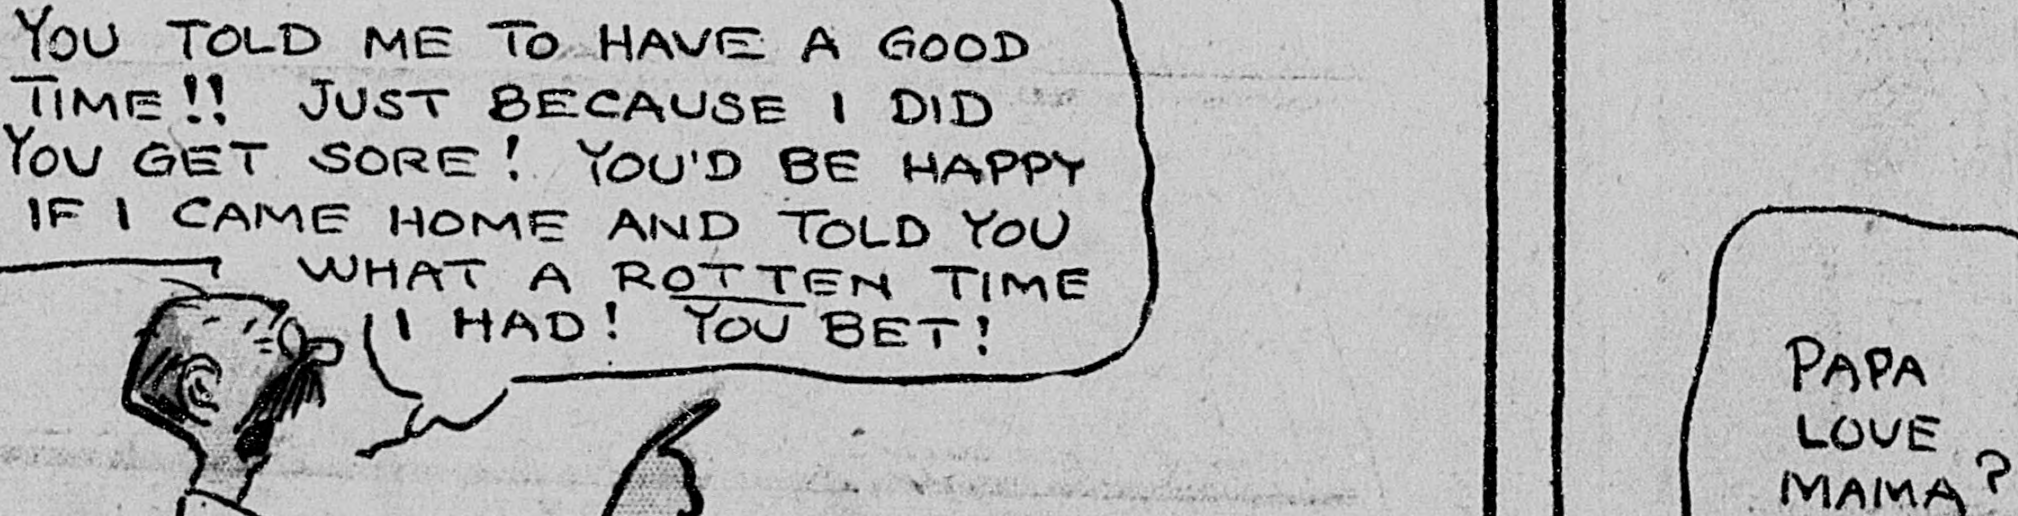 YOU TOLD ME TO HAVE A GOOD
TIME!! JUST BECAUSE I DID
YOU GET SORE! YOU'D BE HAPPY
IF I CAME HOME AND TOLD YOU
WHAT A ROTTEN TIME
I HAD! YOU BET!
PAPA
LOVE
MAMA?